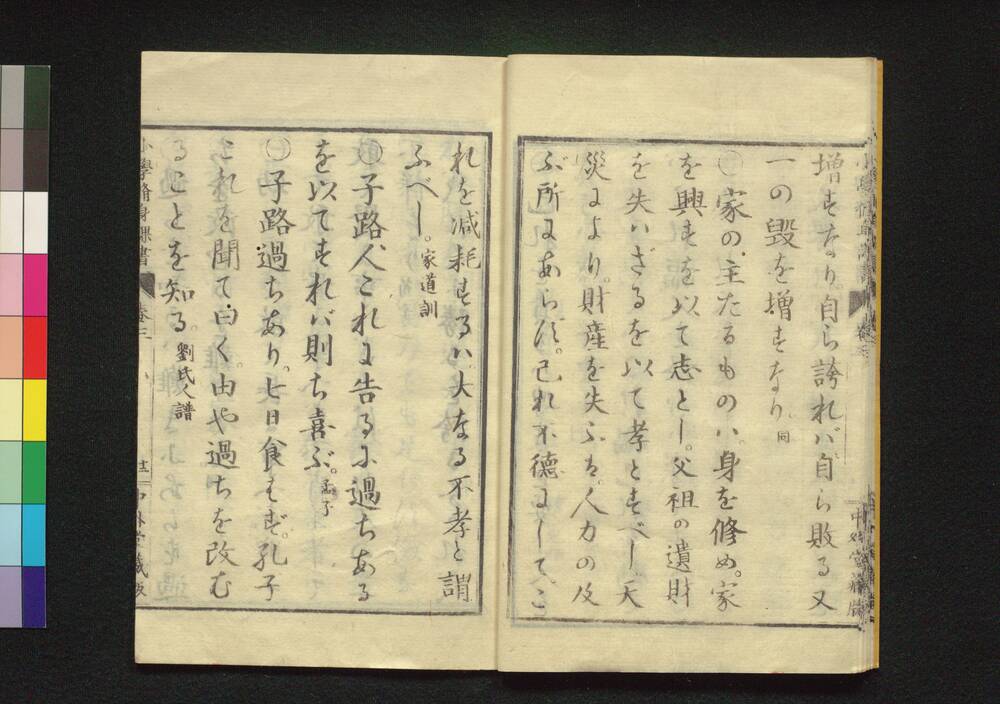 増すなり。自ら誇れバ自ら敗る又
一の毀を増すなり。同
○家の主たるものハ、身を修め。家
を興すを以て志とし。父祖の遺財
を失ハざるを以て孝とすべし天
災により。財産を失ふは。人力の及
ぶ所にあらず。己れ不徳にして、こ
れを減耗するハ、大なる不孝と謂
ふべし。家道訓
○子路人これに告るに過ちある
を以てすれバ則ち喜ぶ。孟子
○子路過ちあり。七日食はず。孔子
これを聞て曰く。由や過ちを改む
ることを知る。劉氏人譜
小學脩身課書 卷三